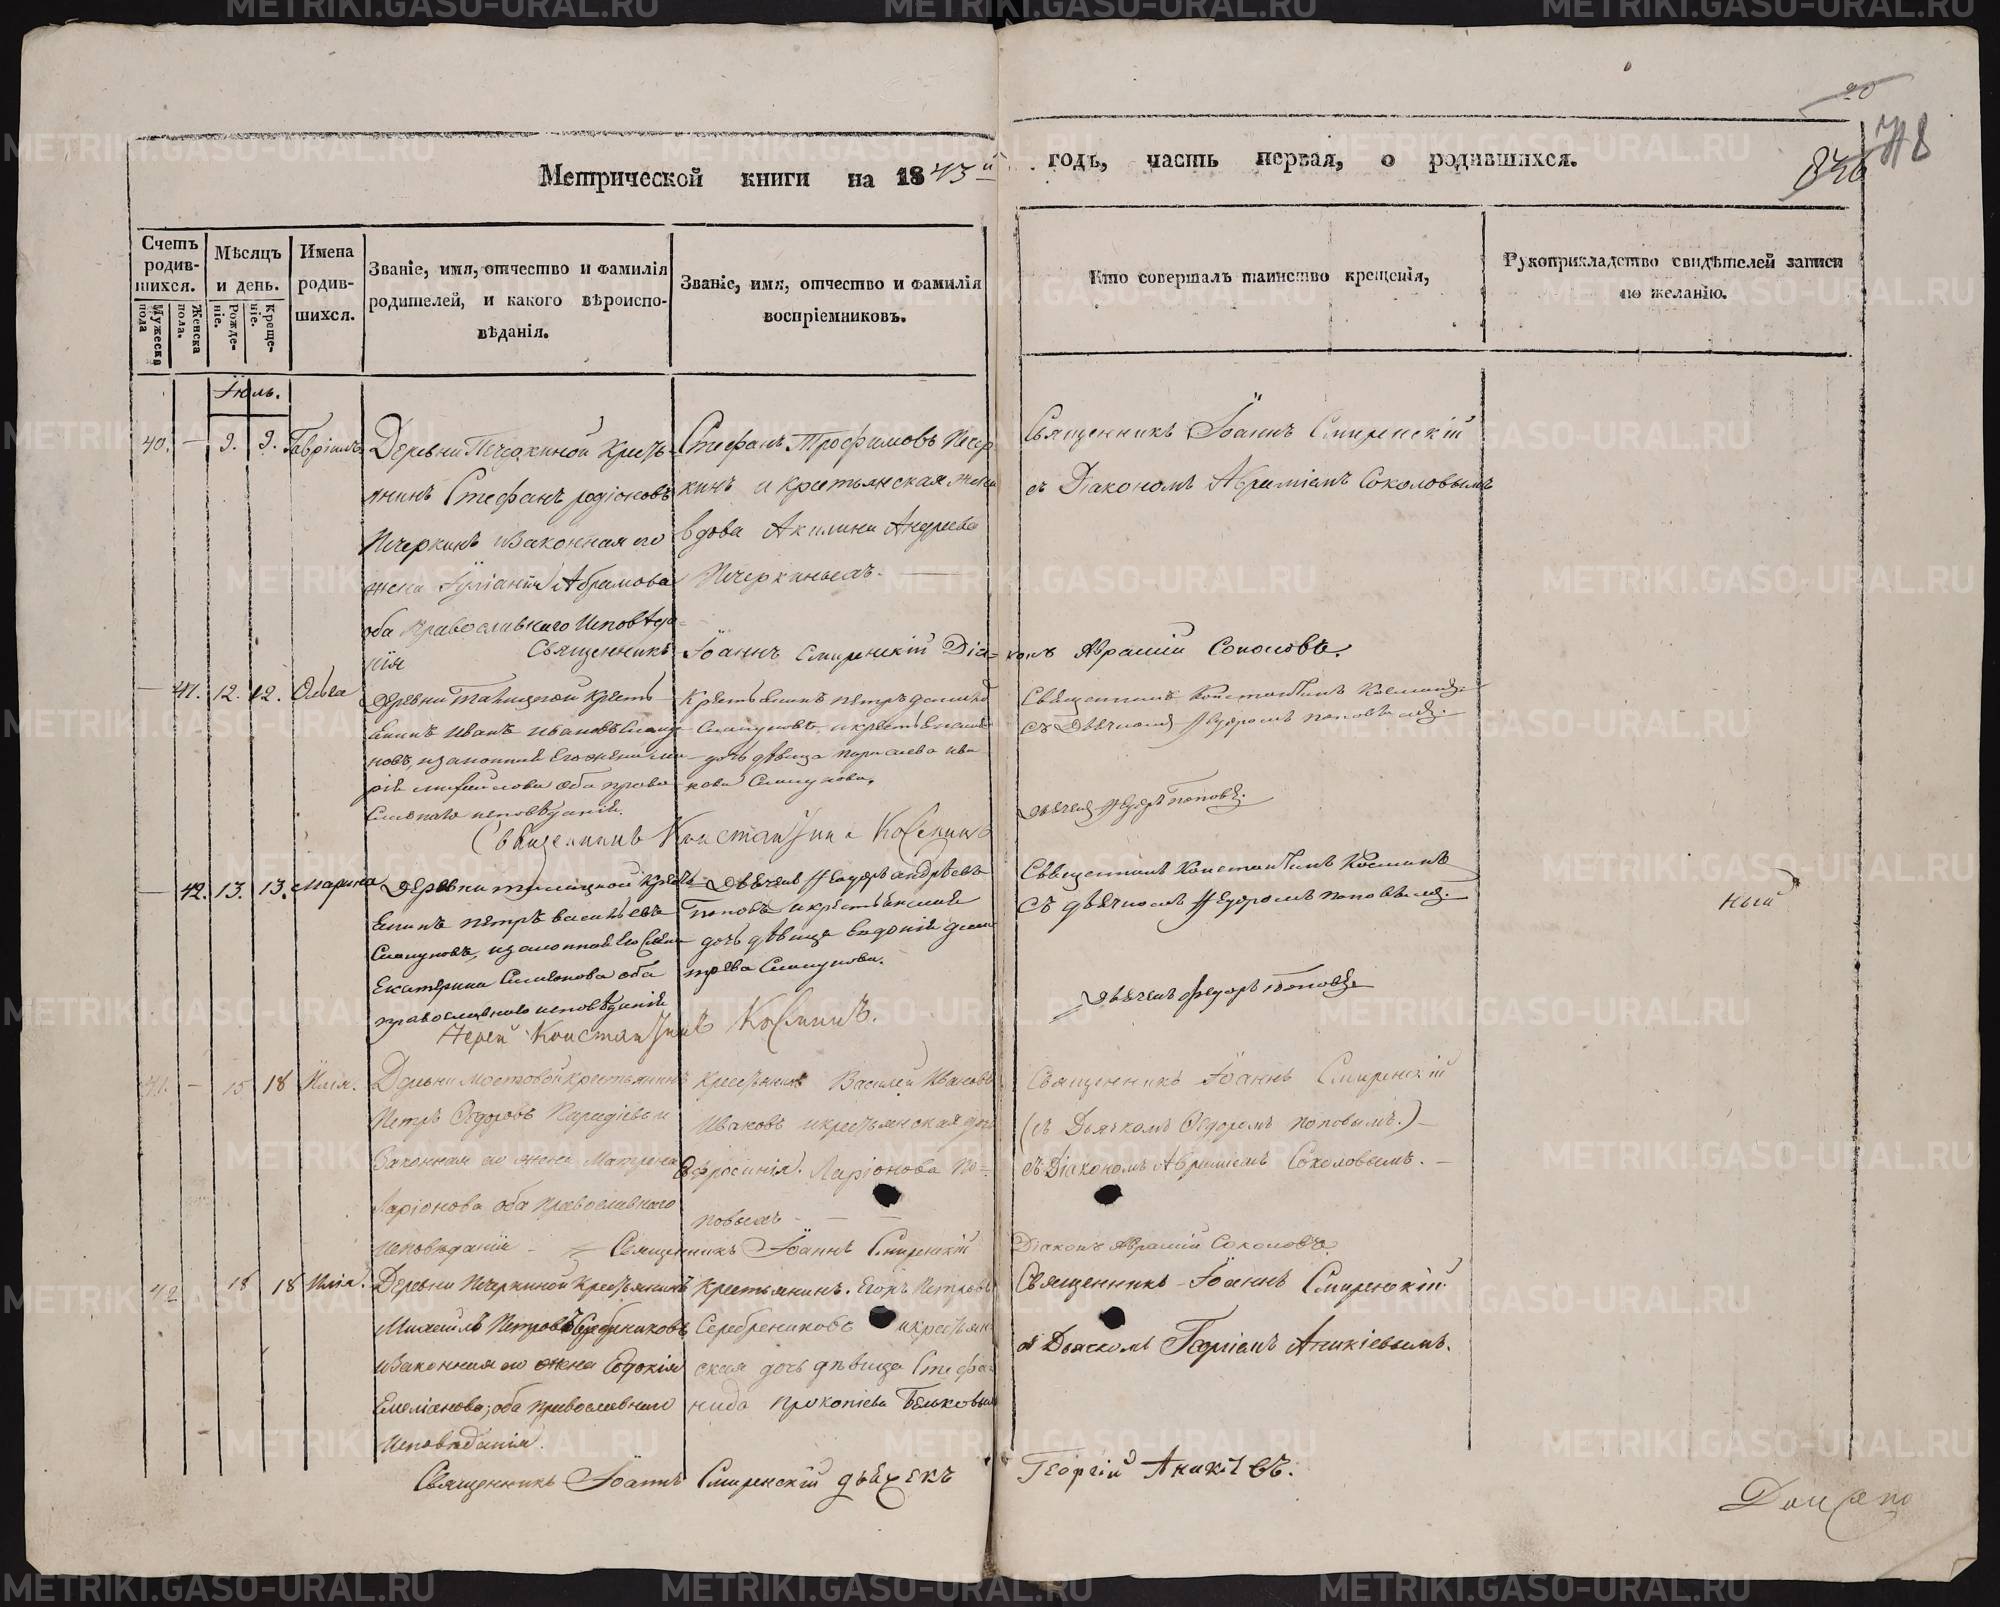 Метрической книги на 1843й годъ, часть первая, о родившихся.
Счетъ родив-шихся.
Мужеска пола
Женска пола.
Мѣсяцъ и день.
Рожде-ніе.
Креще-ніе.
Имена родив-шихся.
Званіе, имя, отчество и фамилія родителей, и какого вѣроиспо-вѣданія.
Званіе, имя, отчество и фамилія воспріемниковъ.
Кто совершалъ таинство крещенія,
Рукоприкладство свидѣтелей записи по желанію.
Іюль.
40. — 9. 9. Гавріилъ
Деревни Печеркиной Кресть-
янинъ Стефанъ Родіоновъ
Печеркинъ и Законная его
жена Іуліанія Абрамова
оба Православнаго Исповѣда-
нія
Стефанъ Трофимовъ Печер
кинъ и крестьянская жена
вдова Акилина Андреева
Печеркиныхъ.
Священникъ Іоаннъ Смиренскій
съ Діакономъ Авраміемъ Соколовымъ
Священникъ Іоаннъ Смиренскій Діа-конъ Аврамій Соколовъ.
— 41. 12. 12. Ольга
Деревни Талицкой Кресть
янинъ Иванъ Ивановъ
оба право
славнаго исповѣданія.
Крестьянинъ Петръ
дочь дѣвица
Священникъ Константинъ Космин
съ Дьячкомъ Ѳедоромъ Поповымъ.
Дьячек Ѳедоръ Поповъ.
Священникъ Константинъ Косминъ
— 42. 13. 13. Марина
Деревни Талицкой Кресть
янинъ Петръ Васильевъ
Екатерина Симеонова оба
православнаго исповѣданія
Дьячек Ѳедоръ Андреевъ
Поповъ и крестьянская
дочь дѣвица Евдокія
Священникъ Константинъ Косминъ
съ дьячкомъ Ѳедоромъ Поповымъ.
ный
Дьячекъ Ѳедоръ Поповъ
Іерей Константинъ Косминъ.
41. — 15 18 Илія.
Деревни Мостовой крестьянинъ
Петръ Ѳедоровъ
Законная его жена Матрона
Ларіонова оба Православнаго
Исповѣданія
Крестьянинъ Василей Ивановъ
Ивановъ и крестьянская дочь
Ефросинія Ларіонова По-
повыхъ
Священникъ Іоаннъ Смиренскій
(съ Дьячкомъ Ѳедоромъ Поповымъ.)
съ Діакономъ Авраміемъ Соколовымъ.
Священникъ Іоаннъ Смиренскій Діаконъ Аврамій Соколовъ
42 18 18 Илія.
Деревни Печеркиной Крестьянинъ
Михаилъ Петровъ Серебрениковъ
и Законная его жена Евдокія
Емеліанова; оба Православнаго
Исповѣданія.
Крестьянинъ Егоръ Петровъ
Серебрениковъ и крестьян
ская дочь дѣвица Стефа
нида Прокопіева Бѣльковыхъ
Священникъ Іоаннъ Смиренскій
съ Дьячкомъ Георгіемъ Аникіевымъ.
Священникъ Іоаннъ Смиренскій дьячекъ Георгій Аникіевъ.